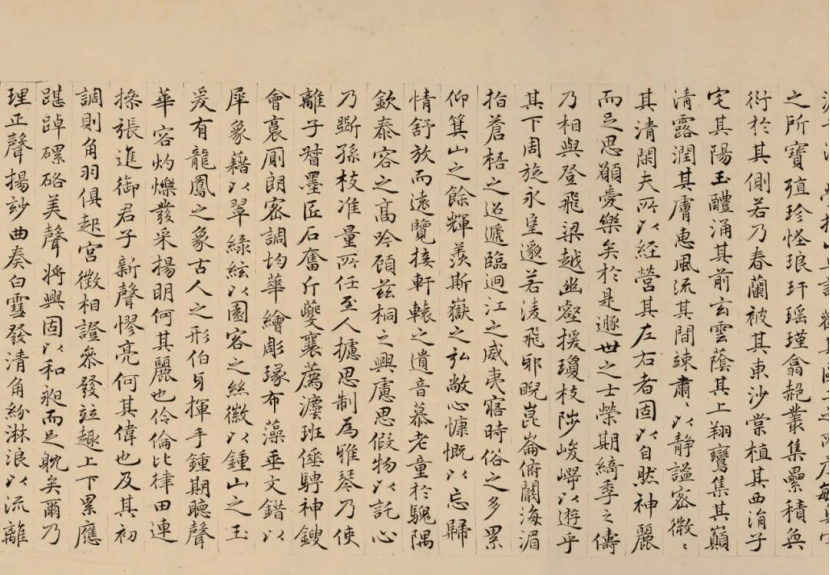 之所寶殖珍怪琅玕瑶瑾翕赩叢集累積奐
衍於其側若乃春蘭被其東沙棠植其西涓子
宅其陽玉醴涌其前玄雲蔭其上翔鸞集其巔
清露潤其膚惠風流其間竦肅〻以静謐密微〻
其清閑夫所以經營其左右者固以自然神麗
而足思願愛樂矣於是遯世之士榮期綺季之儔
乃相與登飛梁越幽壑援瓊枝陟峻崿以遊乎
其下周旋永望邈若淩飛邪睨崑崙俯闞海湄
指蒼梧之迢遞臨迴江之威夷寤時俗之多累
仰箕山之餘輝羨斯嶽之弘敞心慷慨以忘歸
情舒放而遠覽接軒轅之遺音慕老童於騩隅
欽泰容之高吟顧兹桐之興慮思假物以託心
乃斲孫枝准量所任至人攄思制為雅琴乃使
離子督墨匠石奮斤夔襄薦灋班倕騁神鎪
會裛厠朗密調均華繪彫琢布藻垂文錯以
犀象藉以翠綠絃以園客之絲徽以鍾山之玉
爰有龍鳳之象古人之形伯牙揮手鍾期聽聲
華容灼爍發采揚明何其麗也伶倫比律田連
操張進御君子新聲憀亮何其偉也及其初
調則角羽俱起宮徵相證參發竝趣上下累應
踸踔磥硌美聲將興固以和昶而足耽矣爾乃
理正聲揚玅曲奏白雪發清角紛淋浪以流離